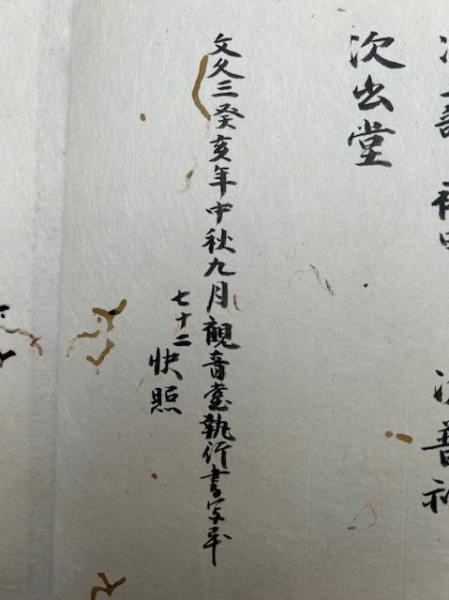 次善神
次出堂
文久三癸亥年中秋九月觀音堂執行書写畢
七十二
快照